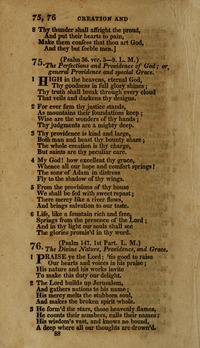 75, 76 CREATION AND
8 Thy thunder shall affright the proud,
And put their hearts to pain,
Make them confess that thou art God,
And they but feeble men.]
75. (Psalm 36. ver. 5—9. L. M.)
The Perfections and Providence of God; or,
general Providence and special Grace.
1 HIGH in the heavens, eternal God,
Thy goodness in full glory shines;
Thy truth shall break through every cloud
That veils and darkens thy designs.
2 For ever firm thy justice stands,
As mountains their foundations keep;
Wise are the wonders of thy hands;
Thy judgments are a mighty deep.
3 Thy providence is kind and large,
Both man and beast thy bounty share;
The whole creation is thy charge,
But saints are thy peculiar care.
4 My God! how excellent thy grace,
Whence all our hope and comfort springs!
The sons of Adam in distress
Fly to the shadow of thy wings.
5 From the provisions of thy house
We shall be fed with sweet repast;
There mercy like a river flows,
And brings salvation to our taste.
6 Life, like a fountain rich and free,
Springs from the presence of the Lord;
And in thy light our souls shall see
The glories promis'd in thy word.
76. (Psalm 147. 1st Part. L. M.)
The Divine Nature, Providence, and Grace.
1 PRAISE ye the Lord; 'tis good to raise
Our hearts and voices in his praise;
His nature and his works invite
To make this duty our delight.
2 The Lord builds up Jerusalem,
And gathers nations to his name;
His mercy melts the stubborn soul,
And makes the broken spirit whole.
3 He form'd the stars, those heavenly flames,
He counts their numbers, calls their names:
His wisdom's vast, and knows no bound,
A deep where all our thoughts are drown'd.